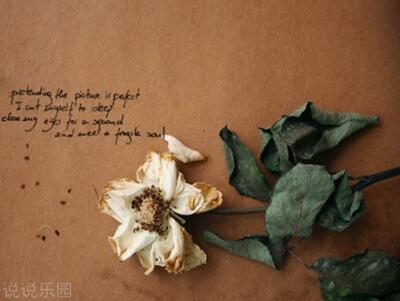 pretending the picture is perfect
I cut myself to deep
close my eyes for a second
and meet a fragile soul
说说乐园